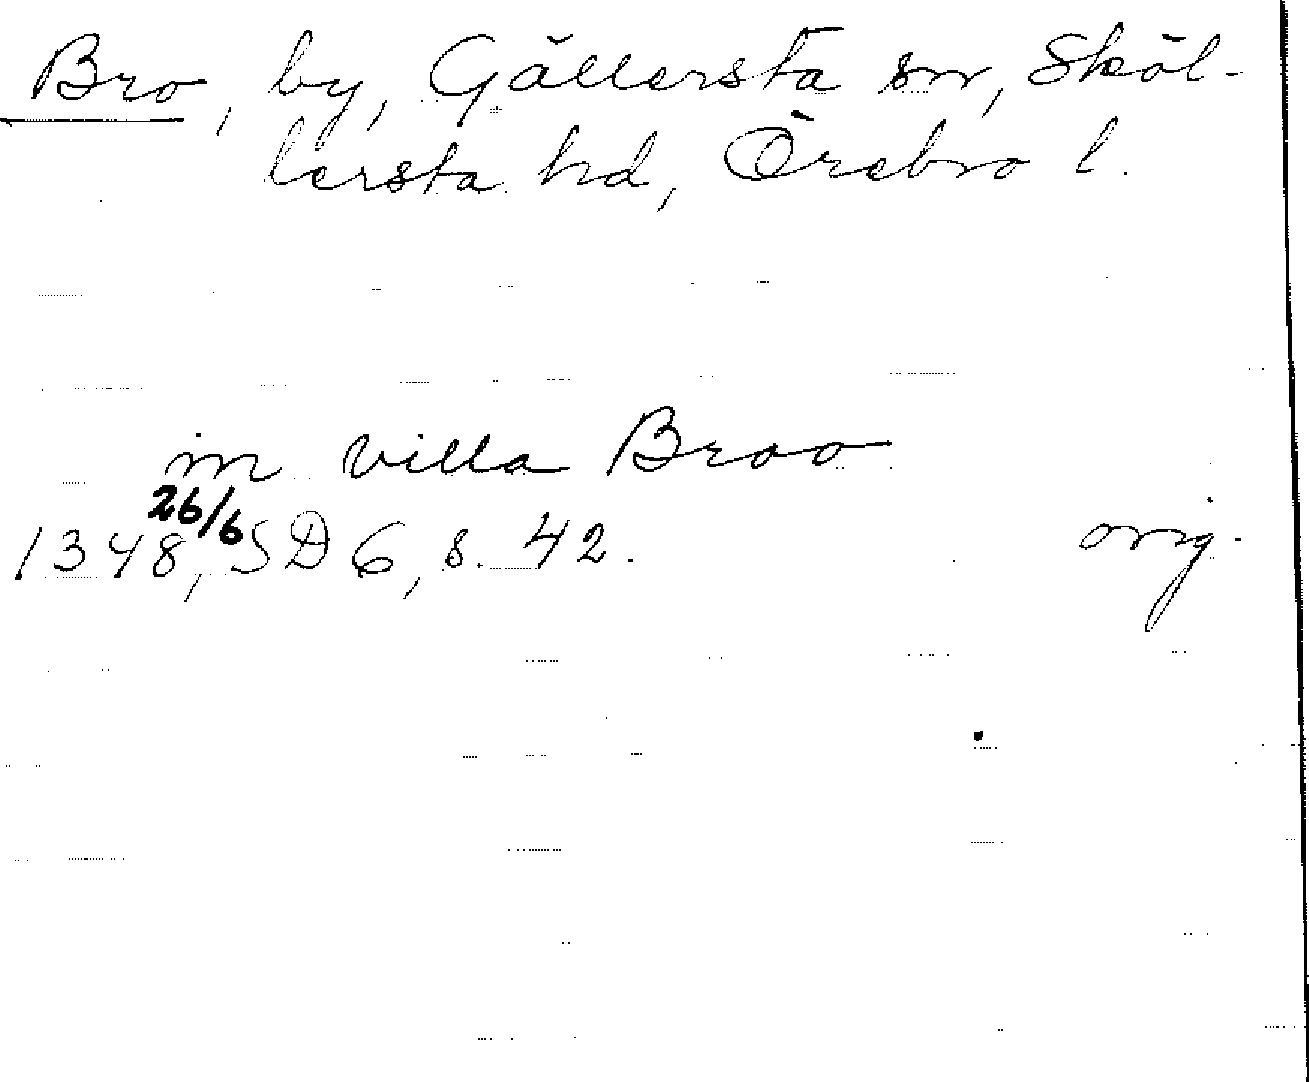 Bro, by, Gällersta sn, Sköl-
lersta hd, Örebro l.
in villa Broo
1348, 26/6 SD 6, s. 42. orig.